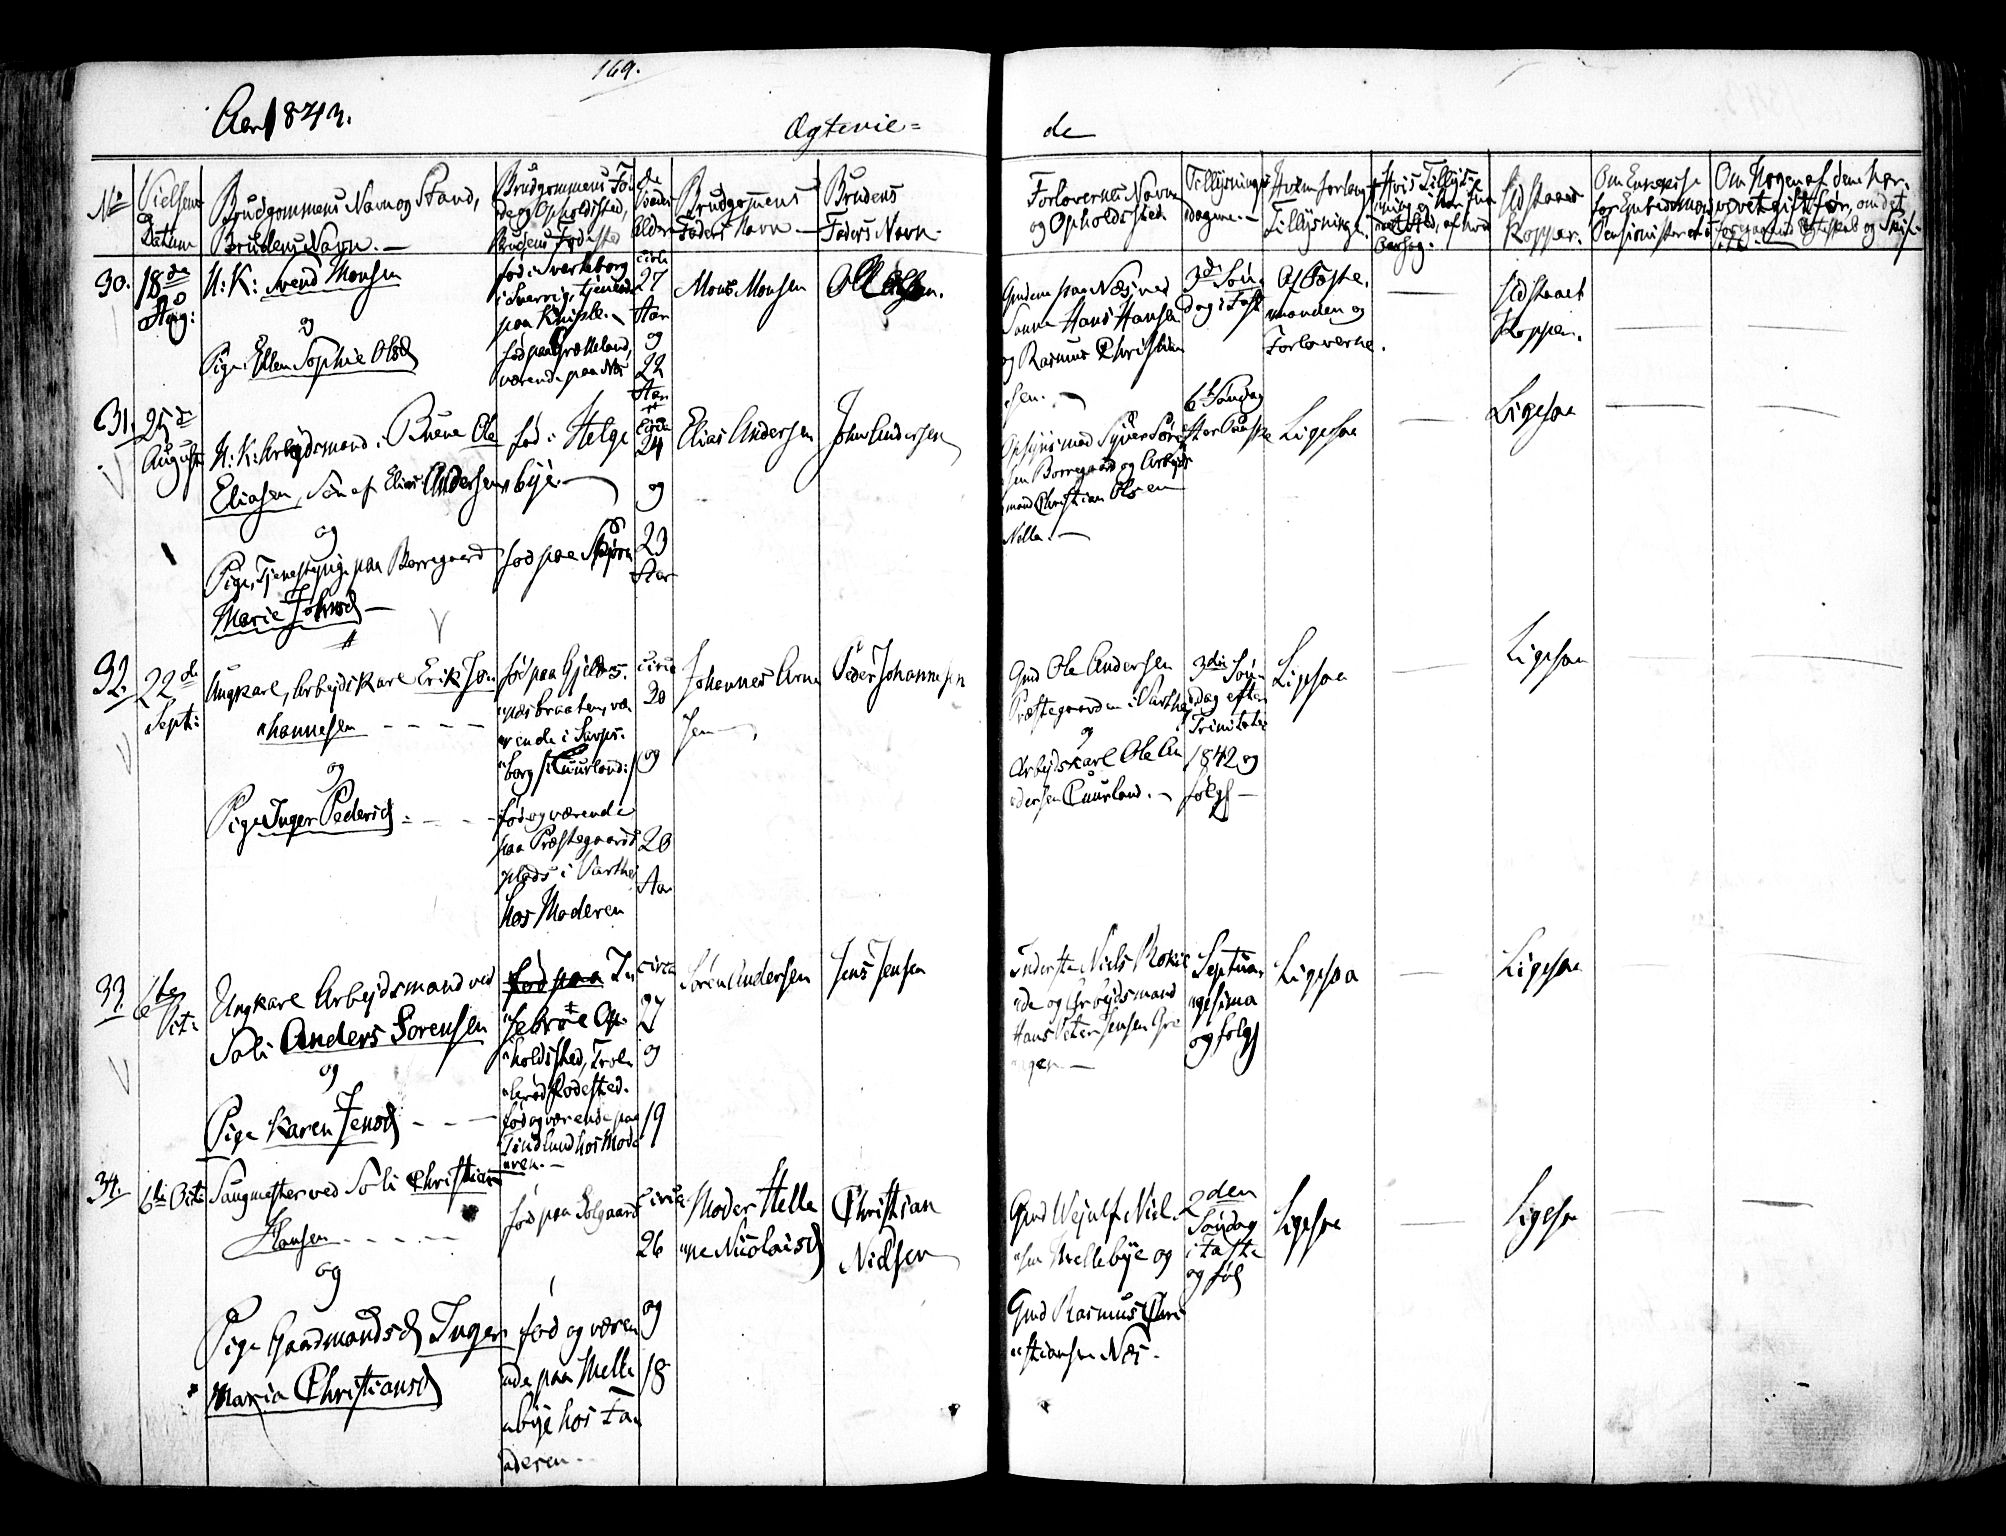 169.
Aar 1843.
Ægtevie=
de
No
Vielsens Datum
Brudgommens Navn og Stand,
Brudens Navn. —
Brudgommens Fø-
de og Opholdssted,
Brudens Fødested
Alder
Brudgommens
Faders Navn —
Brudens
Faders Navn.
Forlovernes Navn
og Opholdssted
Tillysnings
dagene. —
Hvem forlangt
Tillysning.
Hvis Tillys-
ning ei har fun-
det Sted,
Udstaaet
Kopper.
Om Enkekasse
for Embedsmænd
Pensionister
Om Nogen af dem har
været gift før, om det
foregaaende Ægteskab og Skif-
30.
18de
Aug:
U: K: Svend Monsen
og
Pige Ellen Sophie Olsd
fød i Svarteborg
i Sverrig, tjenende
paa Kniple. —
fød paa Grætteland,
værende paa Næs
circa
27
Aar
og
22
Aar
Mons Monsen
Ole Olsen.
Gudem paa Næs ved
Sanne Hans Hansen
og Rasmus Christian
sen. —
3die Søn-
dag i Fast
Af Føste-
manden og
Forloverne.
Udstaaet
Kopper.
31.
25de
August
U: K: Arbejdsmand i Buene Ole
Eliasen, Søn af Elias Andersen
og
Pige, Tjenestepige paa Borregaard
Marie Johnsd —
fød i Helge
bye. —
fød paa Skjørn
circa
24
og
23
Aar
Elias Andersen
John Andersen
Opsynsmad Syver Søren
sen Borregaard og Arbejds
mand Christian Olsen
Nelle. —
6te Søndag
efter Paaske
Ligesaa
Ligesaa
32.
22de
Sept:
Ungkarl, Arbejdskarl Erik Jo-
hannesen
og
Pige Inger Pedersd
fød paa Gjelds.
næsbraaten, væ
rende i Sarps-
borg /: Cuurland:/
fød og værende
paa Præstegaards
plads i Varthe
hos Moderen
circa
20
og
20
Aar
Johannes Arne
sen
Peder Johannesen
Gmd Ole Andersen
Præstegaarden i Varthe
og
Arbejdskarl Ole An
dersen Cuurland. —
3die Søn
dag efter
Trinitatis
1842 og
følg —
Ligesaa
Ligesaa
33.
6te
Oct:
Ungkarl Arbejdsmand ved
Soli Anders Sørensen
og
Pige Karen Jensd
fød paa In
sebroe Op-
holdssted, Trole
berød Fødested.
fød og værende paa
Tindlund hos Mode
ren. —
circa
27
og
19
Søren Andersen
Jens Jensen
Inderste Niels
og Arbejdsmand
Hans Peter Jensen
Septua-
gesima
og følg
Ligesaa
Ligesaa
34.
6te Oct:
Saugmester ved Soli Christian
Hansen
og
Pige Gaardmandsd Inger
Maria Christiansd
fød paa Solgaard
fød og væren
de paa Melle
bye hos Fa
deren.
circa
26
og
18
Moder Helle
ne Nicolaisd
Christian
Nielsen
Gmd Wejulf Niel-
sen Mellebye og
Gmd Rasmus Chri
stiansen Næs.
2den
Søndag
i Faste
og følg
Ligesaa
Ligesaa